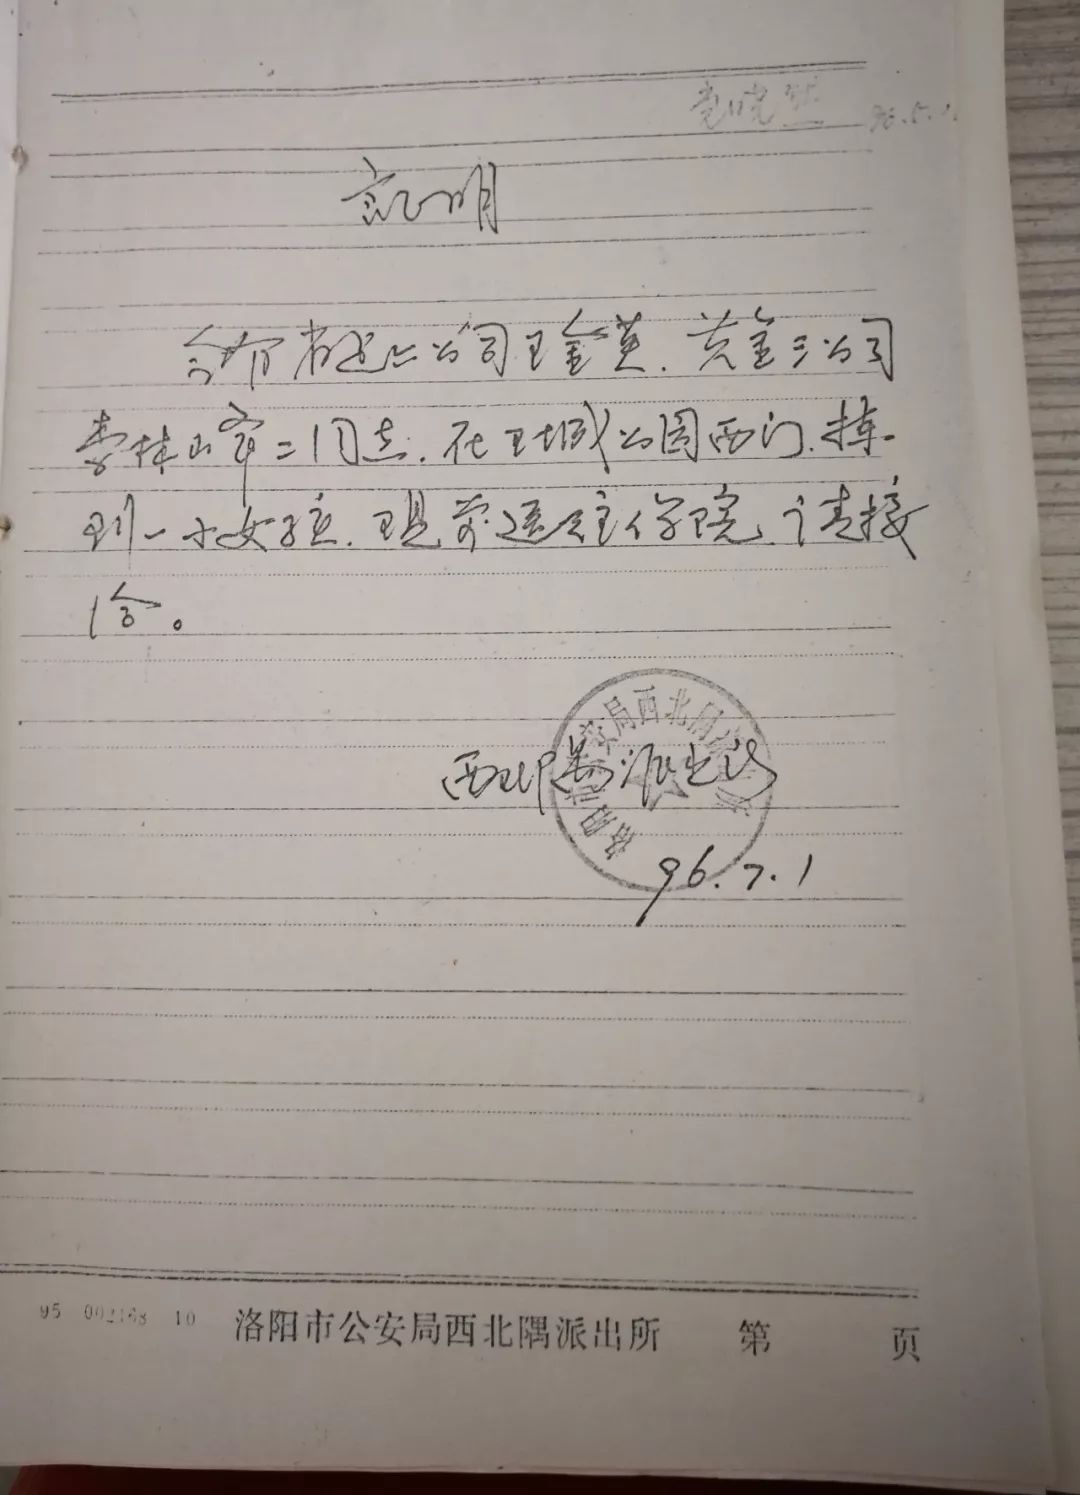 党晓 96.5.1
说明
今有 公司王金英、黄金三公司
李林山军二同志、在王城公园西门、拣
到一小女孩、现荐送住保院、请接
洽。
西北隅派出所
洛阳市公安局西北隅派出所
96.7.1
95 002168 10 洛阳市公安局西北隅派出所 第 页